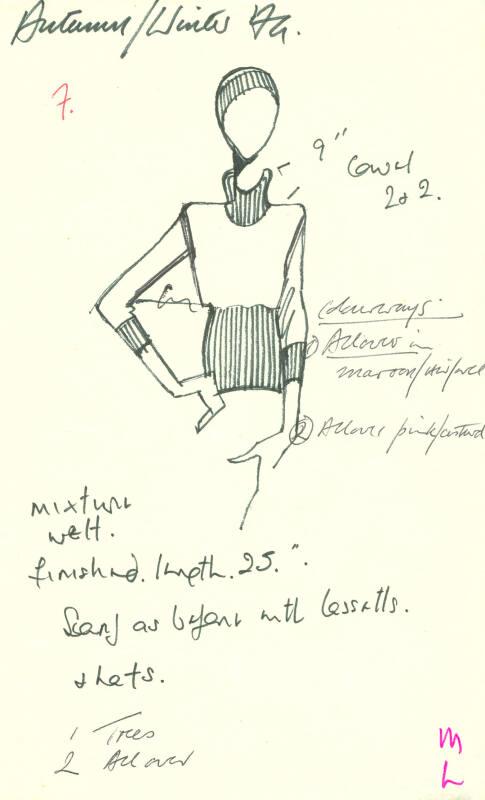 Autumn/Winter
7.
9" Cowel
2 & 2.
Colourways:
① Allover in
maroon/
② Allover pink/custard
mixture
welt.
finished. length. 25."
Scarf as before with tassells.
& hats.
1 Trees
2 Allover
M
L